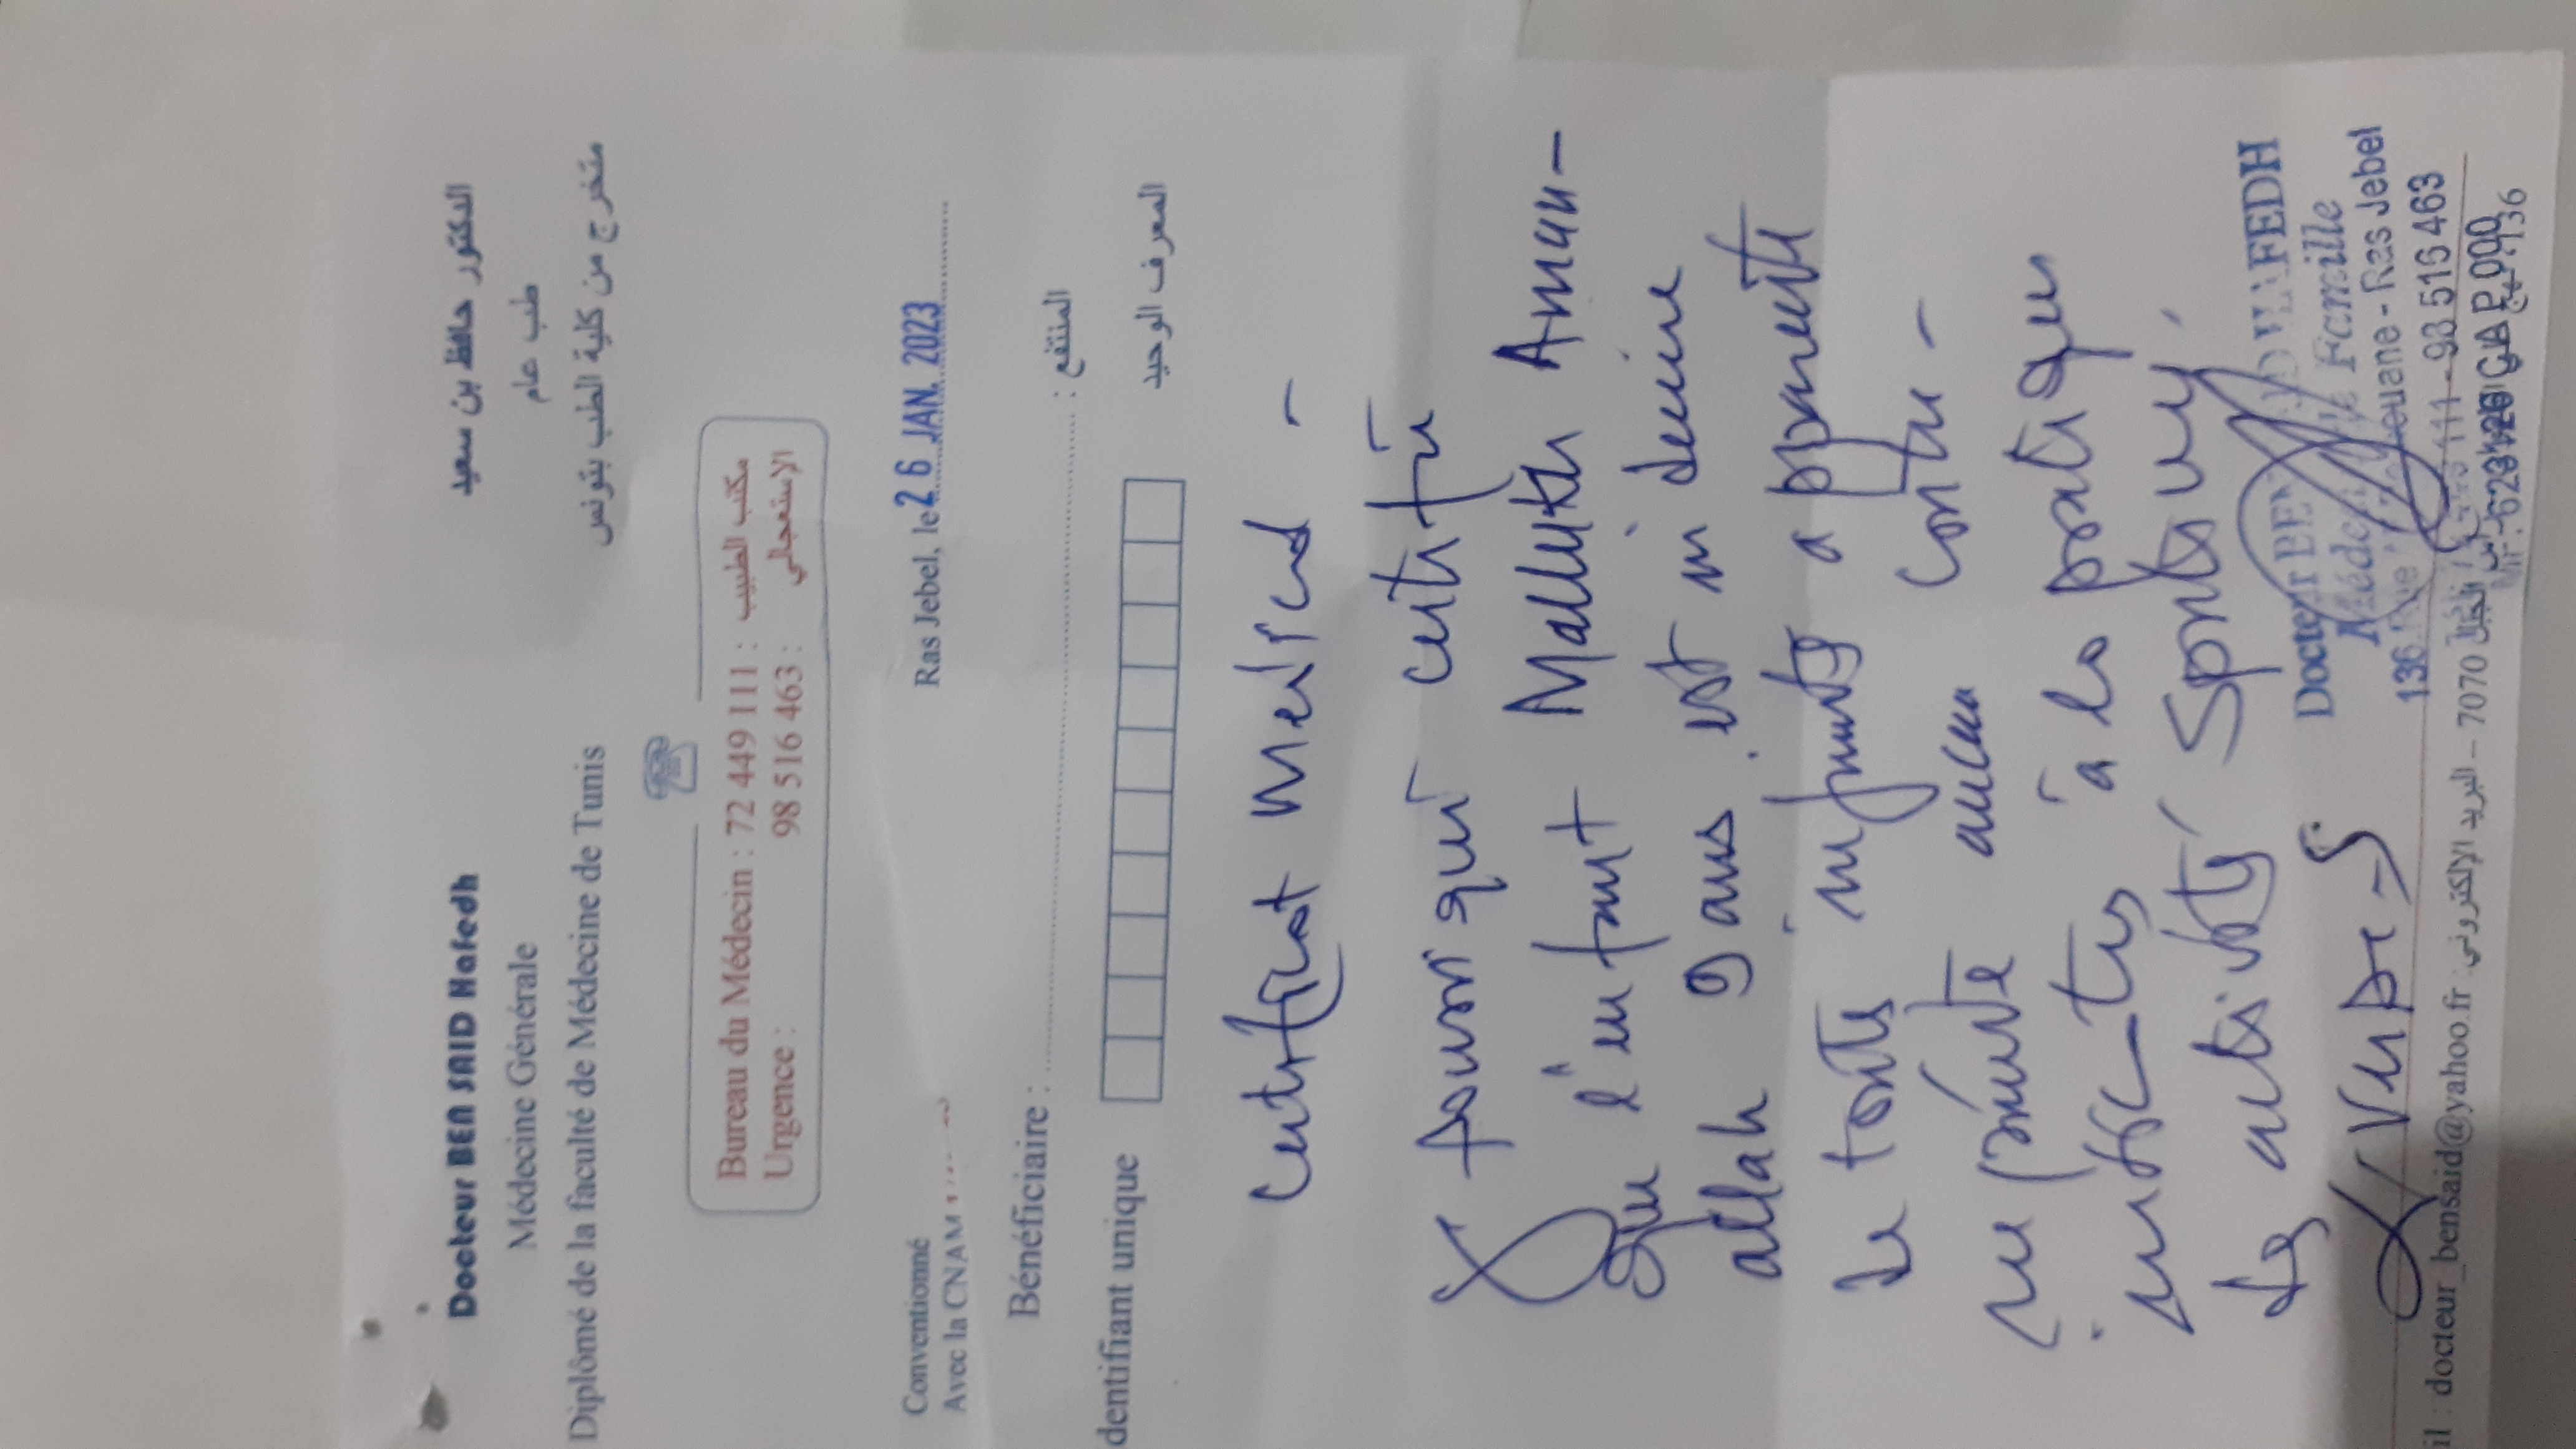 Docteur BEN SAID Hafedh
الدكتور حافظ بن سعيد
Médecine Générale
طب عام
Diplômé de la faculté de Médecine de Tunis
متخرج من كلية الطب بتونس
Bureau du Médecin : 72 449 111 : مكتب الطبيب
Urgence : 98 516 463 : الإستعجالي
Conventionné
Avec la CNAM
Ras Jebel, le 26 JAN. 2023
Bénéficiaire : : المنتفع
dentifiant unique المعرف الوحيد
Certificat medical -
qui certifie
que l'enfant Malluki
allah 9 ans. est in
de toute apparente
ne présente aucun contre -
à la pratique
des activités Sportives.
Docteur BEN HAFEDH
Médecin de Famille
136 Rue - Ras Jebel
111 - 98 516 463
il : docteur_bensaid@yahoo.fr : البريد الإلكتروني – 7070